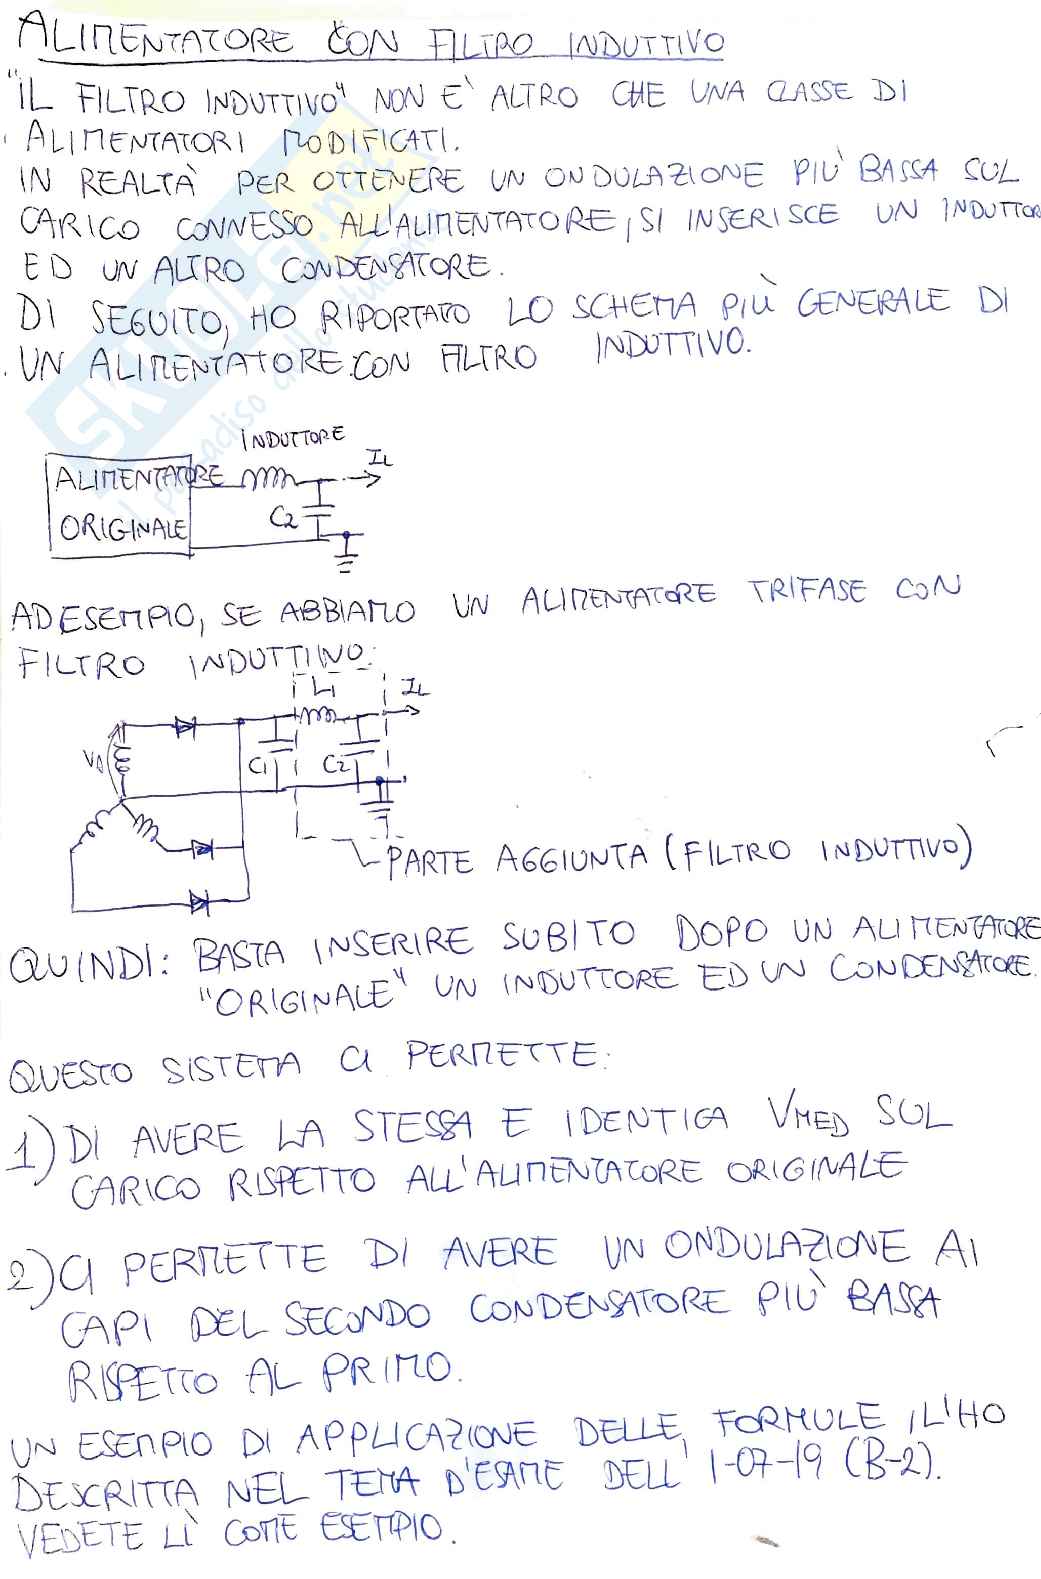 ALIMENTATORE CON FILTRO INDUTTIVO
"IL FILTRO INDUTTIVO" NON E' ALTRO CHE UNA CLASSE DI
ALIMENTATORI MODIFICATI.
IN REALTÀ PER OTTENERE UN ONDULAZIONE PIÙ BASSA SUL
CARICO CONNESSO ALL'ALIMENTATORE, SI INSERISCE UN INDUTTOR
ED UN ALTRO CONDENSATORE.
DI SEGUITO, HO RIPORTATO LO SCHEMA PIÙ GENERALE DI
UN ALIMENTATORE CON FILTRO INDUTTIVO.
INDUTTORE
IL
ALIMENTATORE
ORIGINALE
C2
AD ESEMPIO, SE ABBIAMO UN ALIMENTATORE TRIFASE CON
FILTRO INDUTTIVO:
L1
IL
VA
C1
C2
PARTE AGGIUNTA (FILTRO INDUTTIVO)
QUINDI: BASTA INSERIRE SUBITO DOPO UN ALIMENTATORE
"ORIGINALE" UN INDUTTORE ED UN CONDENSATORE.
QUESTO SISTEMA CI PERMETTE:
1) DI AVERE LA STESSA E IDENTICA VMED SUL
CARICO RISPETTO ALL'ALIMENTATORE ORIGINALE
2) CI PERMETTE DI AVERE UN ONDULAZIONE AI
CAPI DEL SECONDO CONDENSATORE PIÙ BASSA
RISPETTO AL PRIMO.
UN ESEMPIO DI APPLICAZIONE DELLE FORMULE, L'HO
DESCRITTA NEL TEMA D'ESAME DELL' 1-07-19 (B-2).
VEDETE LÌ COME ESEMPIO.
SKUOLA.net